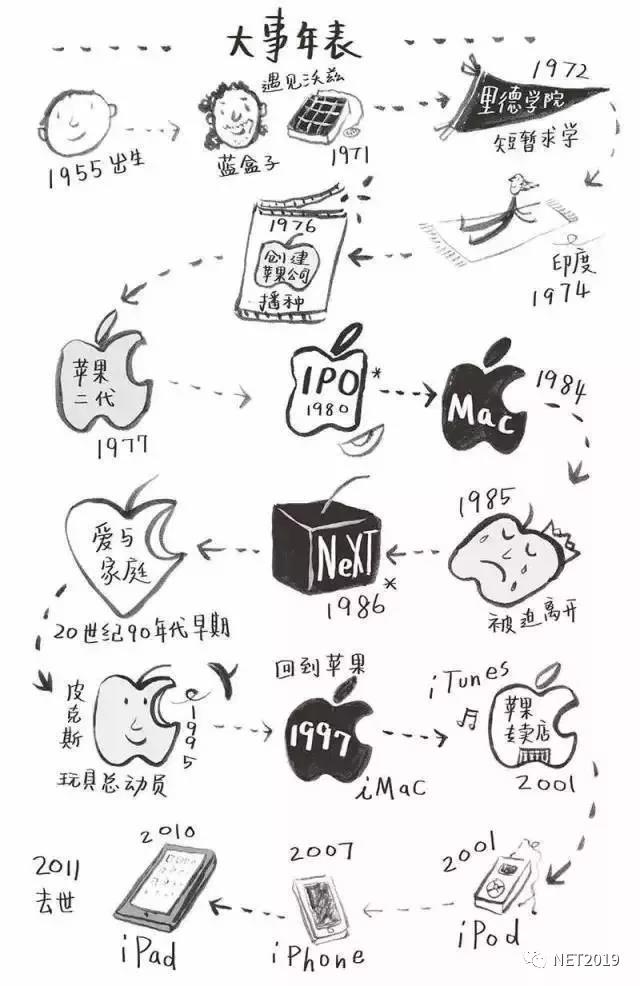 大事年表
1955出生
遇见沃兹
蓝盒子
1971
1972
里德学院
短暂求学
印度
1974
1976
创建
苹果公司
播种
苹果
二代
1977
IPO*
1980
Mac
1984
1985
被迫离开
NeXT
1986*
爱与
家庭
20世纪90年代早期
皮克斯
1995
玩具总动员
回到苹果
1997
iMac
iTunes
苹果
专卖店
2001
2001
iPod
2007
iPhone
2010
iPad
2011
去世
NET2019